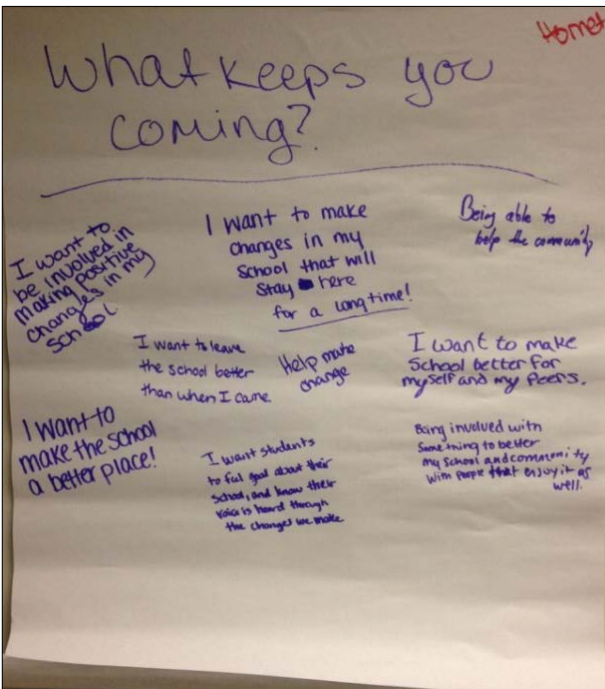 What keeps you
coming?
I want to
be involved in
making positive
changes in my
school
I want to make
changes in my
school that will
stay here
for a long time!
Being able to
help the community
I want to leave
the school better
than when I came
Help make
change
I want to make
School better for
myself and my Peers.
I want to
make the school
a better place!
I want students
to feel good about their
school, and know their
voice is heard through
the changes we make
Being involved with
Something to better
my School and community
with people that enjoy it as
well.